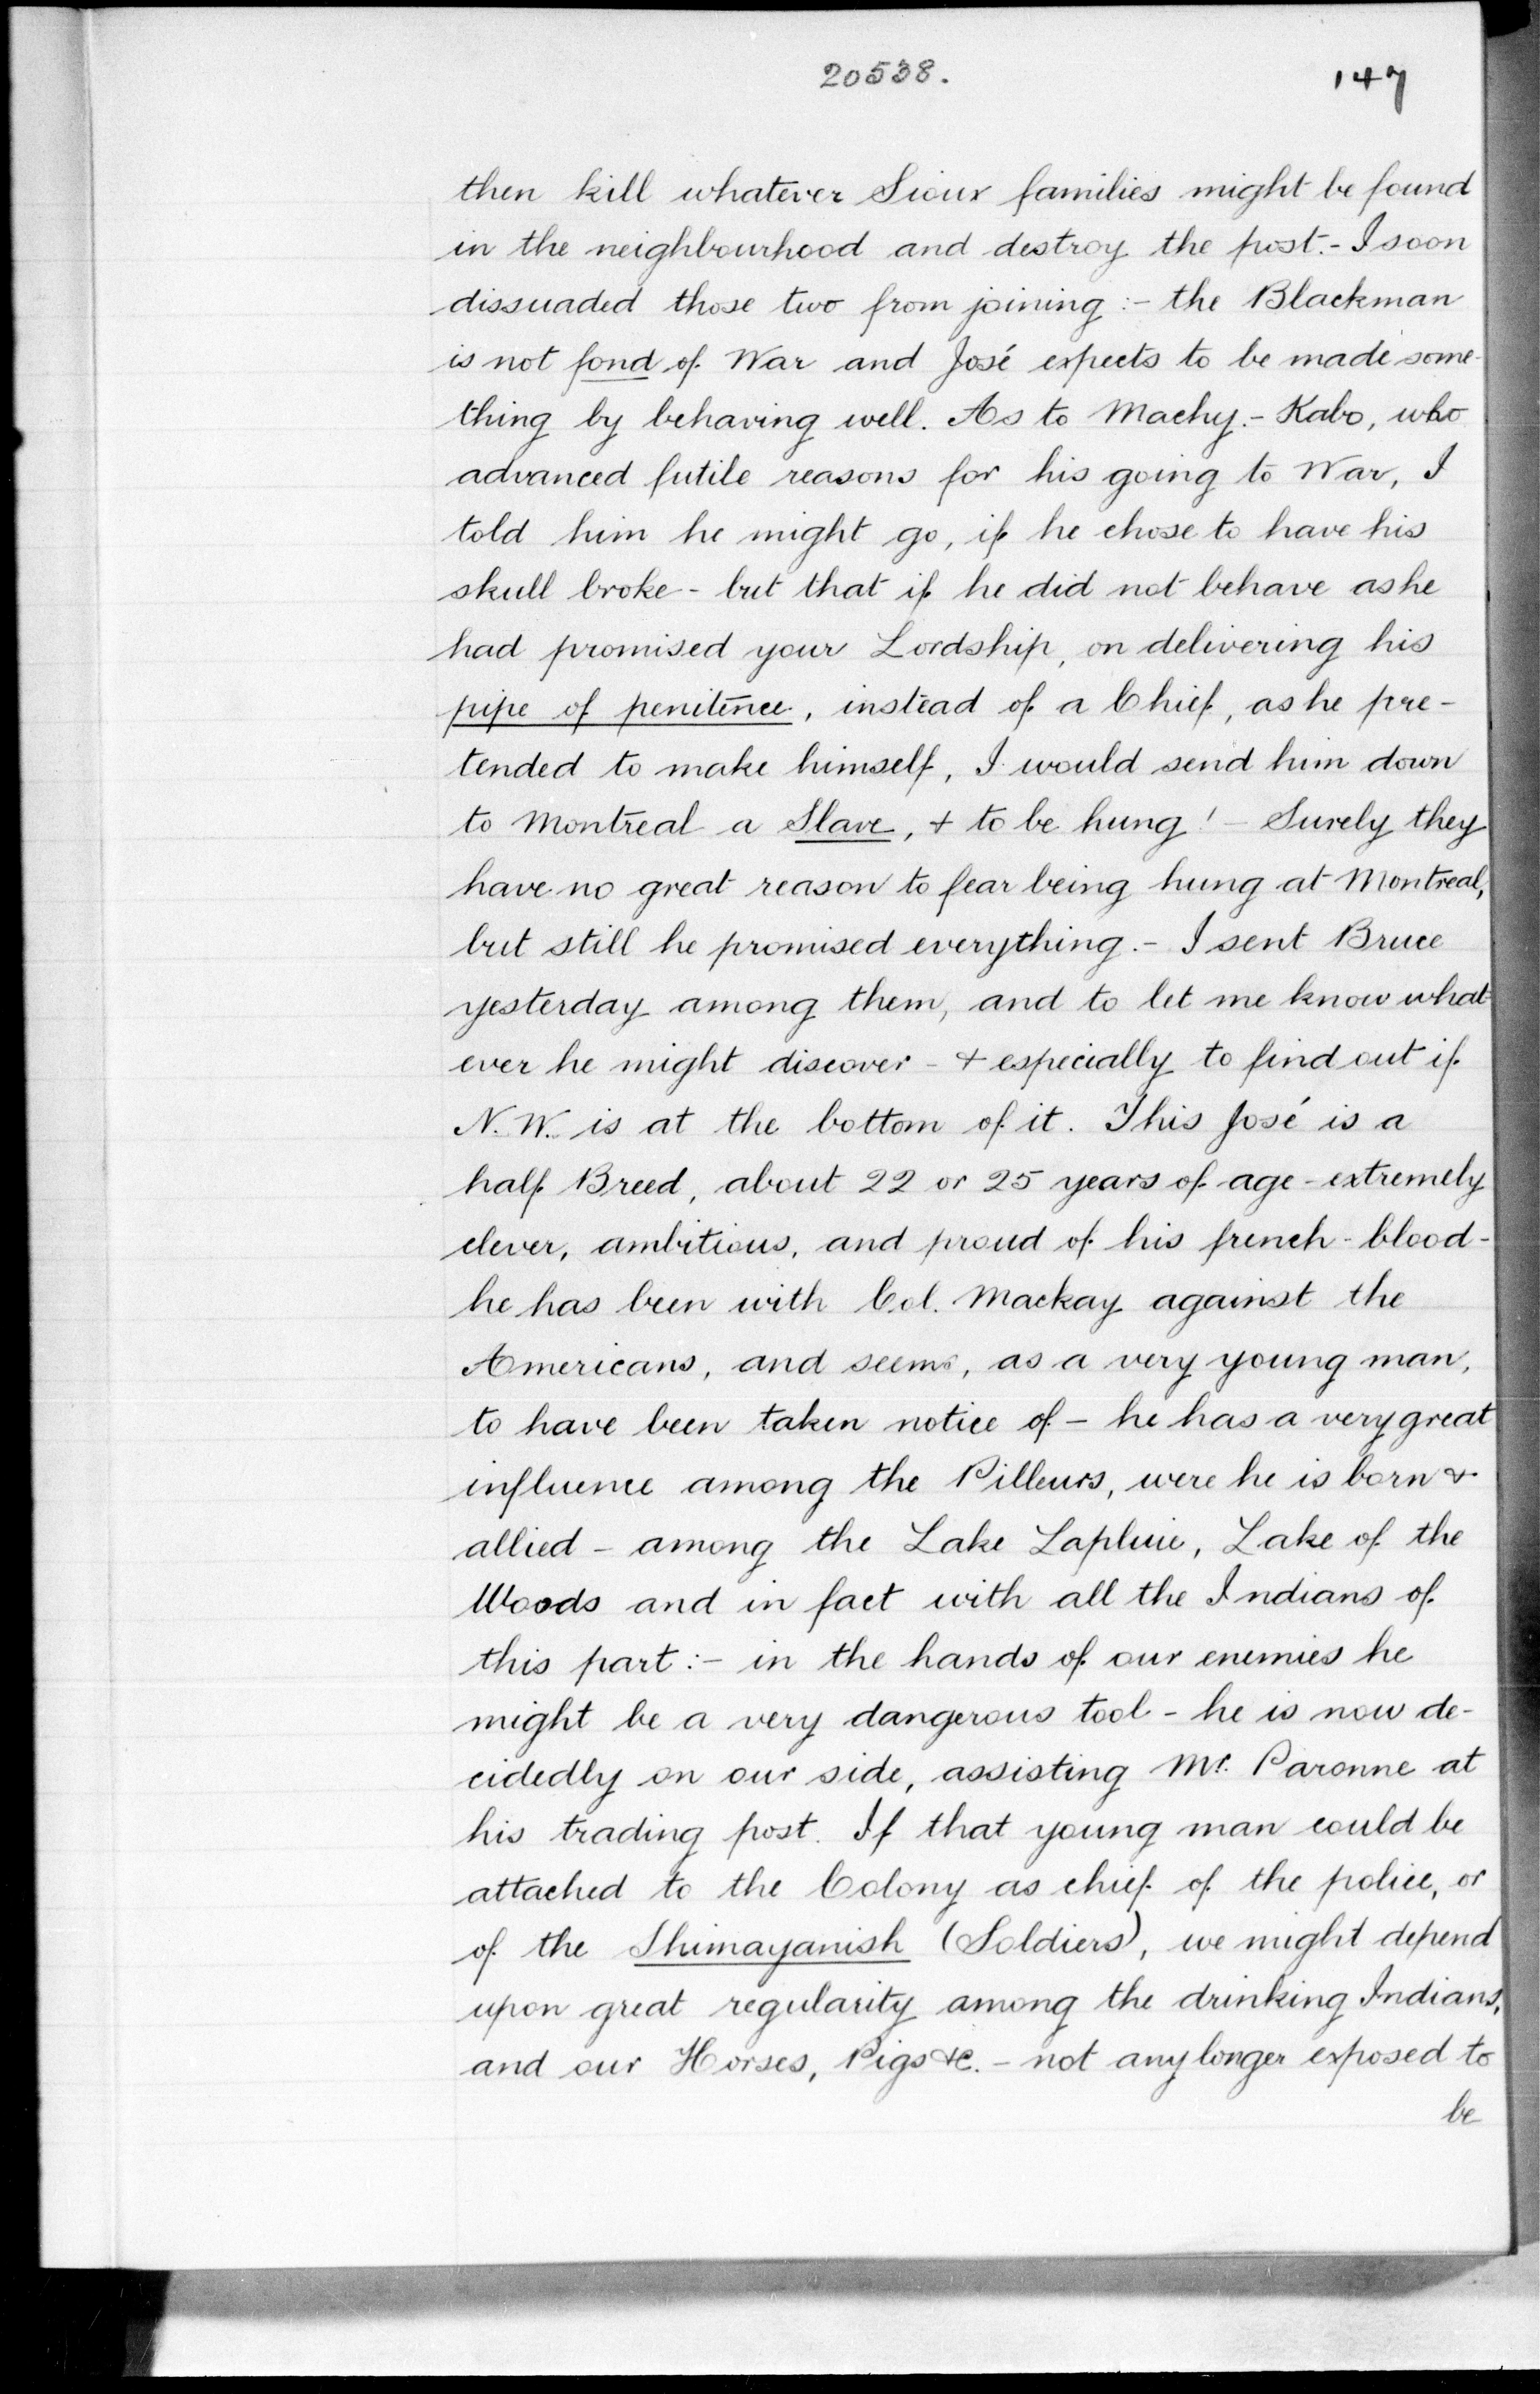 20538. 147
then kill whatever Sioux families might be found
in the neighbourhood and destroy the post.- I soon
dissuaded those two from joining :- the Blackman
is not fond of War and José expects to be made some-
thing by behaving well. As to Machy.- Kabo, who
advanced futile reasons for his going to War, I
told him he might go, if he chose to have his
skull broke - but that if he did not behave as he
had promised your Lordship, on delivering his
pipe of penitence, instead of a Chief, as he pre-
tended to make himself, I would send him down
to Montreal a Slave, & to be hung! - Surely they
have no great reason to fear being hung at Montreal,
but still he promised everything. - I sent Bruce
yesterday among them, and to let me know what-
ever he might discover - & especially to find out if
N.W. is at the bottom of it. This José is a
half Breed, about 22 or 25 years of age - extremely
clever, ambitious, and proud of his french - blood -
he has been with Col. Mackay against the
Americans, and seems, as a very young man,
to have been taken notice of - he has a very great
influence among the Pilleurs, were he is born &
allied - among the Lake Lapluie, Lake of the
Woods and in fact with all the Indians of
this part :- in the hands of our enemies he
might be a very dangerous tool - he is now de-
cidedly on our side, assisting Mr. Paronne at
his trading post. If that young man could be
attached to the Colony as chief of the police, or
of the Shimayanish (Soldiers), we might depend
upon great regularity among the drinking Indians,
and our Horses, Pigs &c. - not any longer exposed to
be